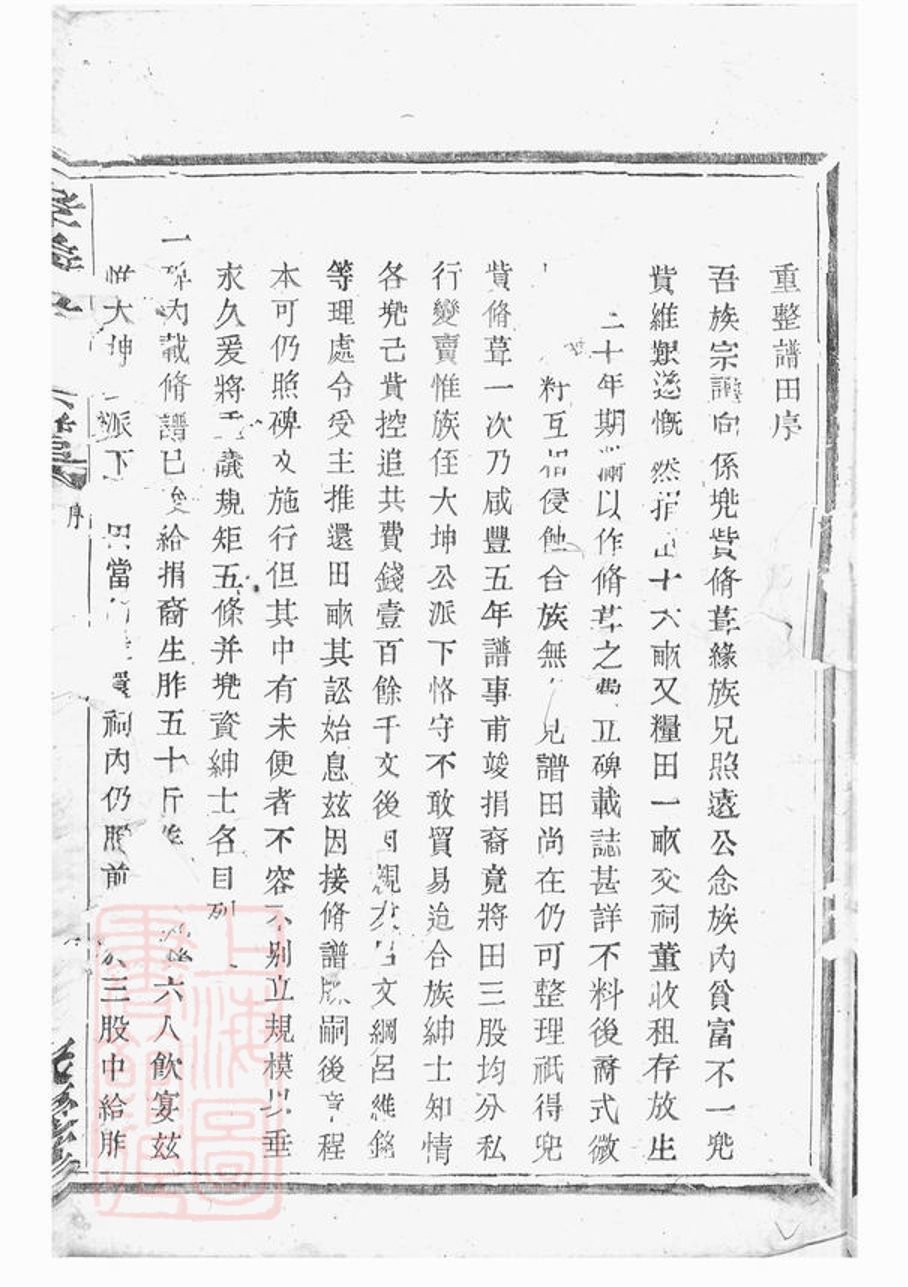 重整譜田序
吾族宗譜向係兠貲脩葺緣族兄照遠公念族內貧富不一兠
貲維艱遂慨然捐田十六畝又糧田一畝交祠董收租存放生
二十年期滿以作脩葺之費立碑載誌甚詳不料後裔式微
互相侵蝕合族無見譜田尚在仍可整理祇得兠
貲脩葺一次乃咸豐五年譜事甫竣捐裔竟將田三股均分私
行變賣惟族侄大坤公派下恪守不敢貿易迨合族紳士知情
各兠己貲控追共費錢壹百餘千文後呂文綱呂維
等理處令受主推還田畝其訟始息玆因接脩譜嗣後章程
本可仍照碑文施行但其中有未便者不容不別立規模以垂
永久爰將議規矩五條并兠資紳士各目列
一碑內載脩譜已竣給捐裔生胙五十斤六人飲宴玆
惟大坤派下田當祠內仍照前三股中給胙
序
上海圖書館藏